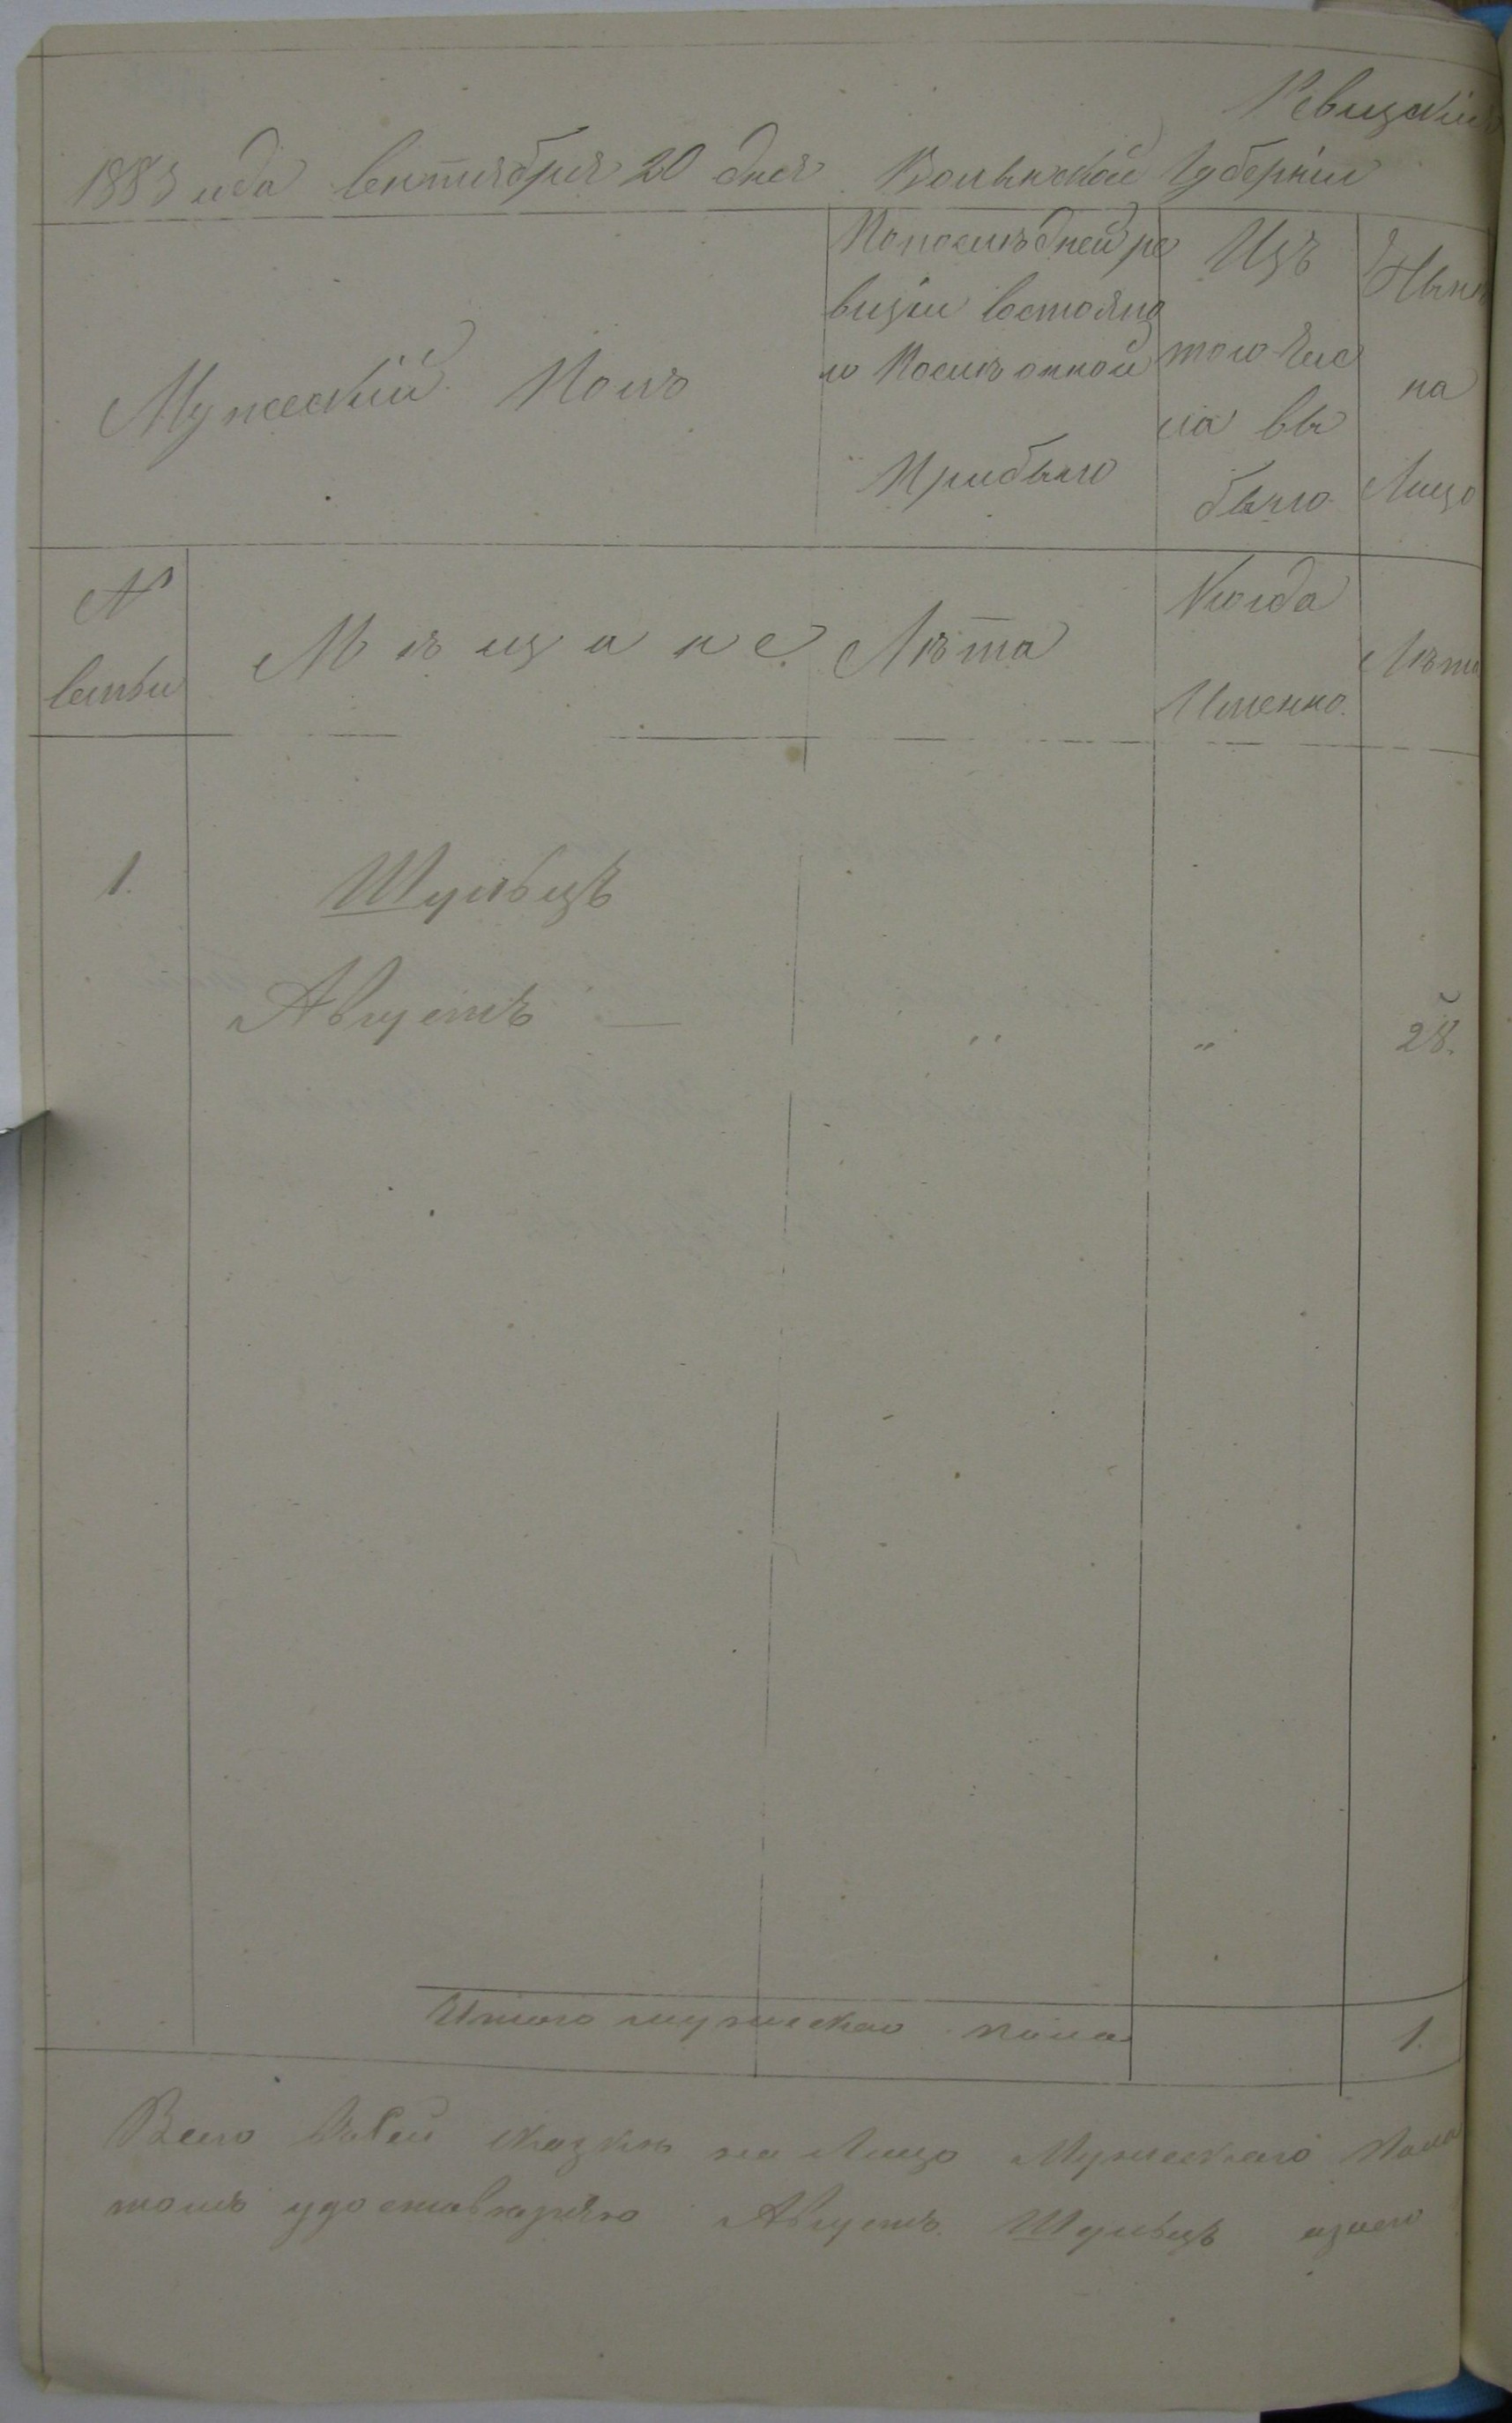 Ревизская
1883 года Сентября 20 дня Волынской Губернии
Мужеский Полъ
По послѣдней ре
визіи состояло
и послѣ оной
Прибыло
Изъ
того чис
ла вы
было
Нынѣ
на
Лицо
№
Семьи
Мѣщане
Лѣта
Когда
Именно.
Лѣта
1.
Шульцъ
Августъ — " " 28.
Итого мужеского пола 1.
Всего в сей сказкѣ на Лицо Мужескаго Пола
томъ удостовѣряю Августъ Шульцъ